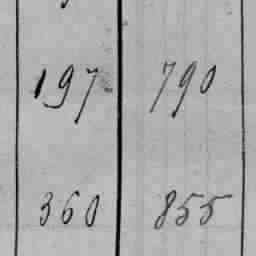 197 790
360 855